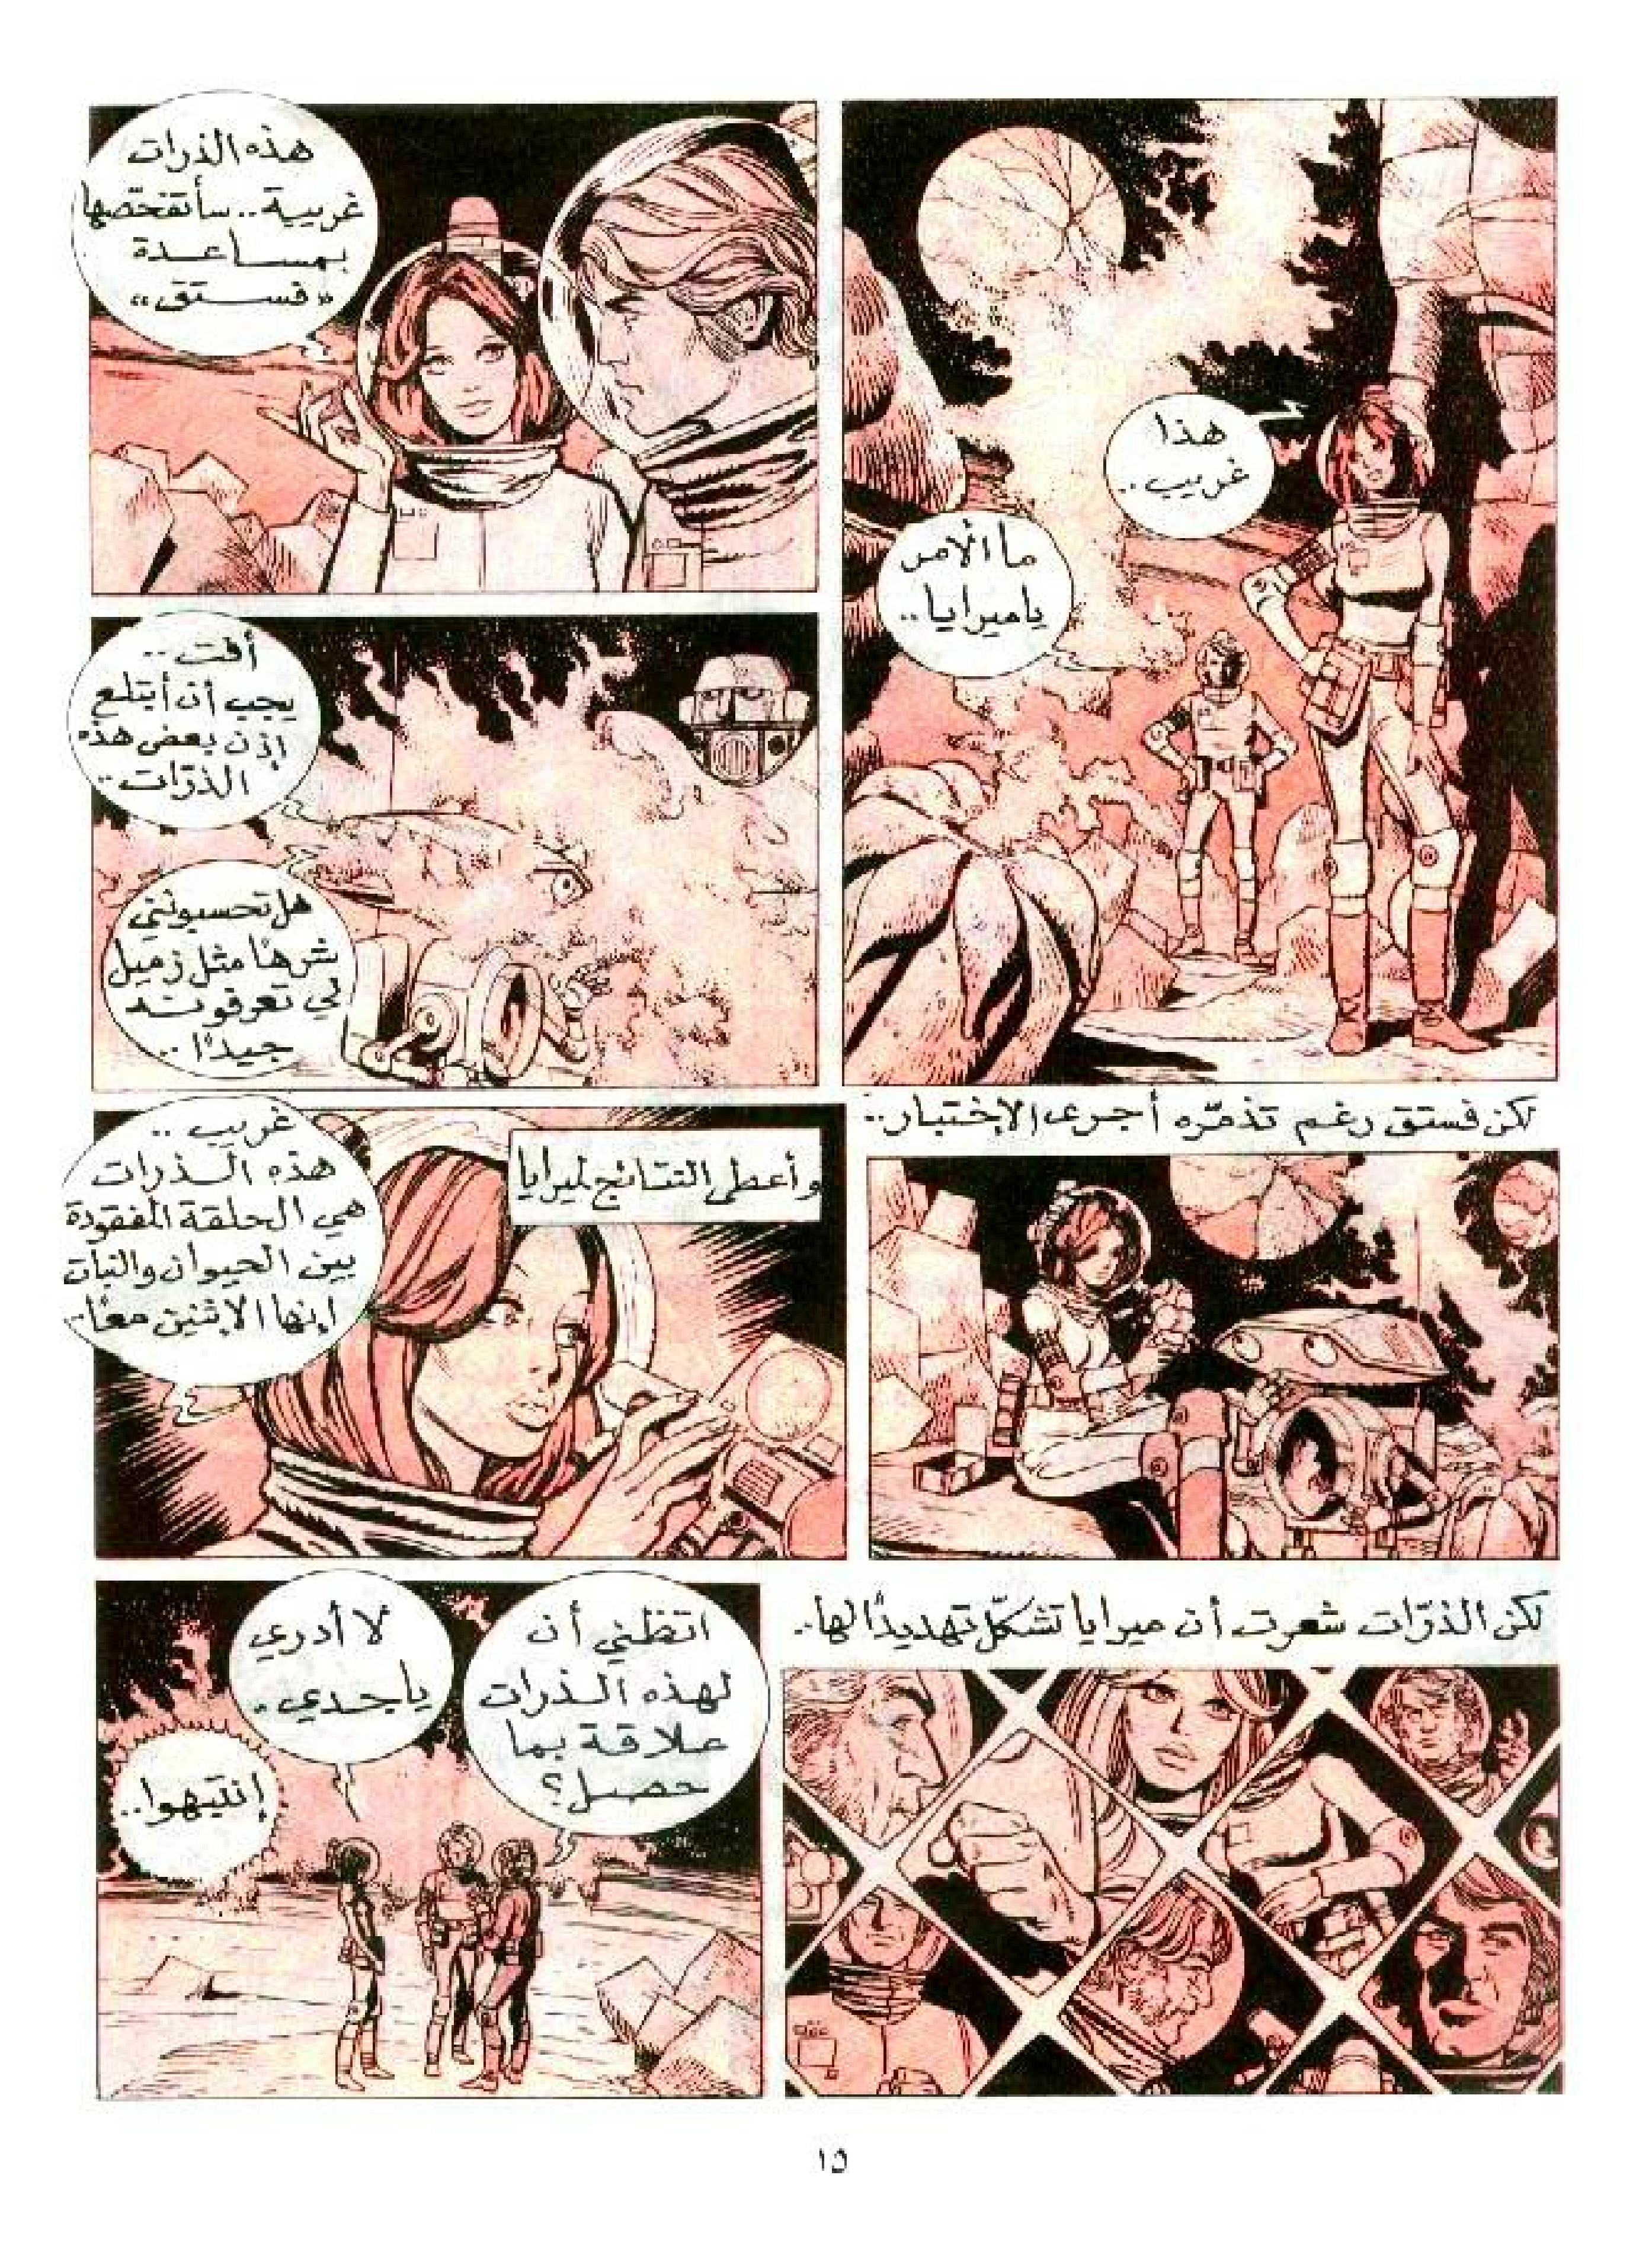 هذا
غريب..
ما الأمر
يا ميرايا..
هذه الذرات
غريبة.. سأتفحّصها
بمساعدة
«فستق»
أفت..
يجب أن أبتلع
إذن بعض هذه
الذرّات..
هل تحسبونني
شرهًا مثل زميل
لي تعرفونه
جيدًا..
لكن فستق رغم تذمّره أجرى الإختبار..
وأعطى النتائج لميرايا
غريب..
هذه الذرات
هي الحلقة المفقودة
بين الحيوان والنبات
إنها الإثنين معًا..
لكن الذرّات شعرت أن ميرايا تشكّل تهديدًا لها..
اتظني أن
لهذه الذرات
علاقة بما
حصل؟
لا أدري
يا جدي.
إنتبهوا..
١٥